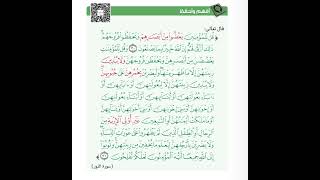 أفهم وأحفظ
قال تعالى:
قُل لِّلْمُؤْمِنِينَ يَغُضُّوا مِنْ أَبْصَارِهِمْ وَيَحْفَظُوا فُرُوجَهُمْ
ذَلِكَ أَزْكَى لَهُمْ إِنَّ اللَّهَ خَبِيرٌ بِمَا يَصْنَعُونَ وَقُل لِّلْمُؤْمِنَاتِ
يَغْضُضْنَ مِنْ أَبْصَارِهِنَّ وَيَحْفَظْنَ فُرُوجَهُنَّ وَلَا يُبْدِينَ
زِينَتَهُنَّ إِلَّا مَا ظَهَرَ مِنْهَا وَلْيَضْرِبْنَ بِخُمُرِهِنَّ عَلَى جُيُوبِهِنَّ
وَلَا يُبْدِينَ زِينَتَهُنَّ إِلَّا لِبُعُولَتِهِنَّ أَوْ آبَائِهِنَّ أَوْ آبَاءِ
بُعُولَتِهِنَّ أَوْ أَبْنَائِهِنَّ أَوْ أَبْنَاءِ بُعُولَتِهِنَّ أَوْ إِخْوَانِهِنَّ
أَوْ بَنِي إِخْوَانِهِنَّ أَوْ بَنِي أَخَوَاتِهِنَّ أَوْ نِسَائِهِنَّ
أَوْ مَا مَلَكَتْ أَيْمَانُهُنَّ أَوِ التَّابِعِينَ غَيْرِ أُولِي الْإِرْبَةِ مِنَ
الرِّجَالِ أَوِ الطِّفْلِ الَّذِينَ لَمْ يَظْهَرُوا عَلَى عَوْرَاتِ النِّسَاءِ
وَلَا يَضْرِبْنَ بِأَرْجُلِهِنَّ لِيُعْلَمَ مَا يُخْفِينَ مِن زِينَتِهِنَّ وَتُوبُوا
إِلَى اللَّهِ جَمِيعًا أَيُّهَ الْمُؤْمِنُونَ لَعَلَّكُمْ تُفْلِحُونَ
(سورة النور)